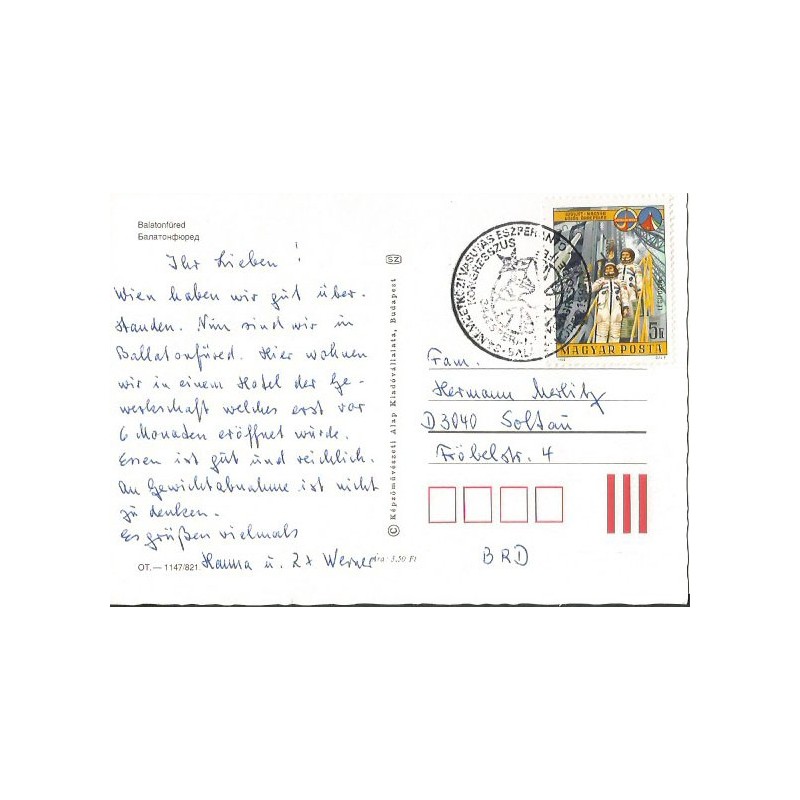 Balatonfüred
Балатонфюред
Ihr Lieben!
Wien haben wir gut über-
standen. Nun sind wir in
Ballatonfüred. Hier wohnen
wir in einem Hotel der Ge-
werkschaft welches erst vor
6 Monaten eröffnet würde.
Essen ist gut und reichlich.
An Gewichtabnahme ist nicht
zu denken.
Es grüßen vielmals
Hanna u. 2x Werner
OT. — 1147/821
Ára: 3,50 Ft
SZ
© Képzőművészeti Alap Kiadóvállalata, Budapest
NEMZETKÖZI VASUTAS ESZPERANTO
KONGRESSZUS
SZOVJET-MAGYAR
KÖZÖS ŰRREPÜLÉS
5Ft
MAGYAR POSTA
Fam.
Hermann Merlitz
D 3040 Soltau
Fröbelstr. 4
BRD